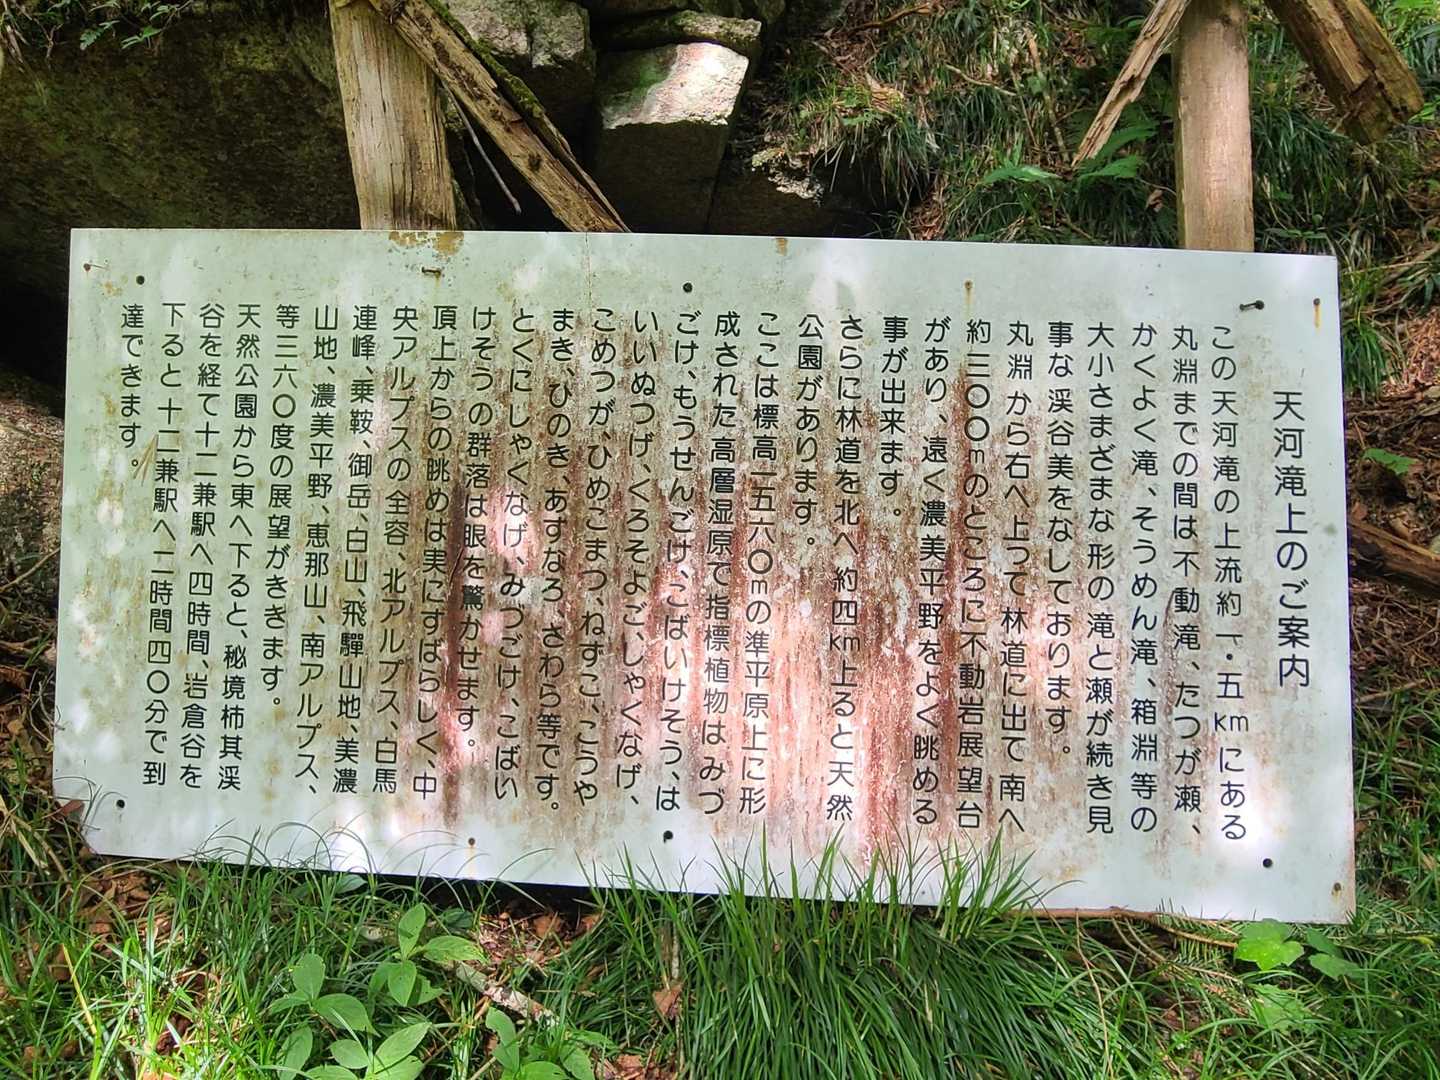 天河滝上のご案内
この天河滝の上流約一・五kmにある
丸淵までの間は不動滝、たつが瀬、
かくよく滝、そうめん滝、箱淵等の
大小さまざまな形の滝と瀬が続き見
事な渓谷美をなしております。
丸淵から右へ上って林道に出て南へ
約三〇〇mのところに不動岩展望台
があり、遠く濃美平野をよく眺める
事が出来ます。
さらに林道を北へ約四km上ると天然
公園があります。
ここは標高一五六〇mの準平原上に形
成された高層湿原で指標植物はみづ
ごけ、もうせんごけ、こばいけそう、は
いいぬつげ、くろそよご、しゃくなげ、
こめつが、ひめこまつ、ねずこ、こうや
まき、ひのき、あすなろ、さわら等です。
とくにしゃくなげ、みづごけ、こばい
けそうの群落は眼を驚かせます。
頂上からの眺めは実にすばらしく、中
央アルプスの全容、北アルプス、白馬
連峰、乗鞍、御岳、白山、飛騨山地、美濃
山地、濃美平野、恵那山、南アルプス、
等三六〇度の展望がききます。
天然公園から東へ下ると、秘境柿其渓
谷を経て十二兼駅へ四時間、岩倉谷を
下ると十二兼駅へ二時間四〇分で到
達できます。